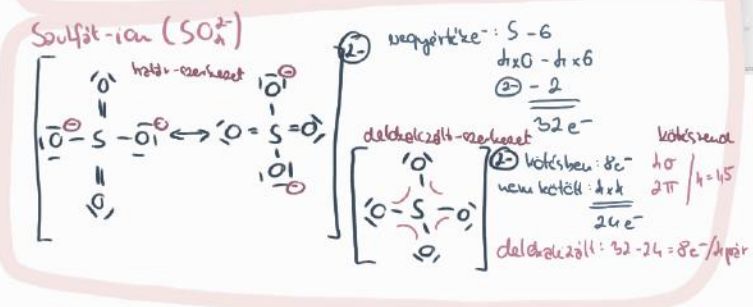 Szulfát-ion (SO₄²⁻)
határ-szerkezet
O
O⊖ – S – O⊖ ↔ O = S = O
O
O⊖
O⊖
2-
vegyértéke⁻: S – 6
4xO – 4x6
2- – 2
32 e⁻
delokalizált-szerkezet
O
O – S – O
O
2-
kötésben: 8e⁻
nem kötött: 4x4
24e⁻
kötésrend
4σ
2π
/4 = 1,5
delokalizált: 32 - 24 = 8e⁻/4pár